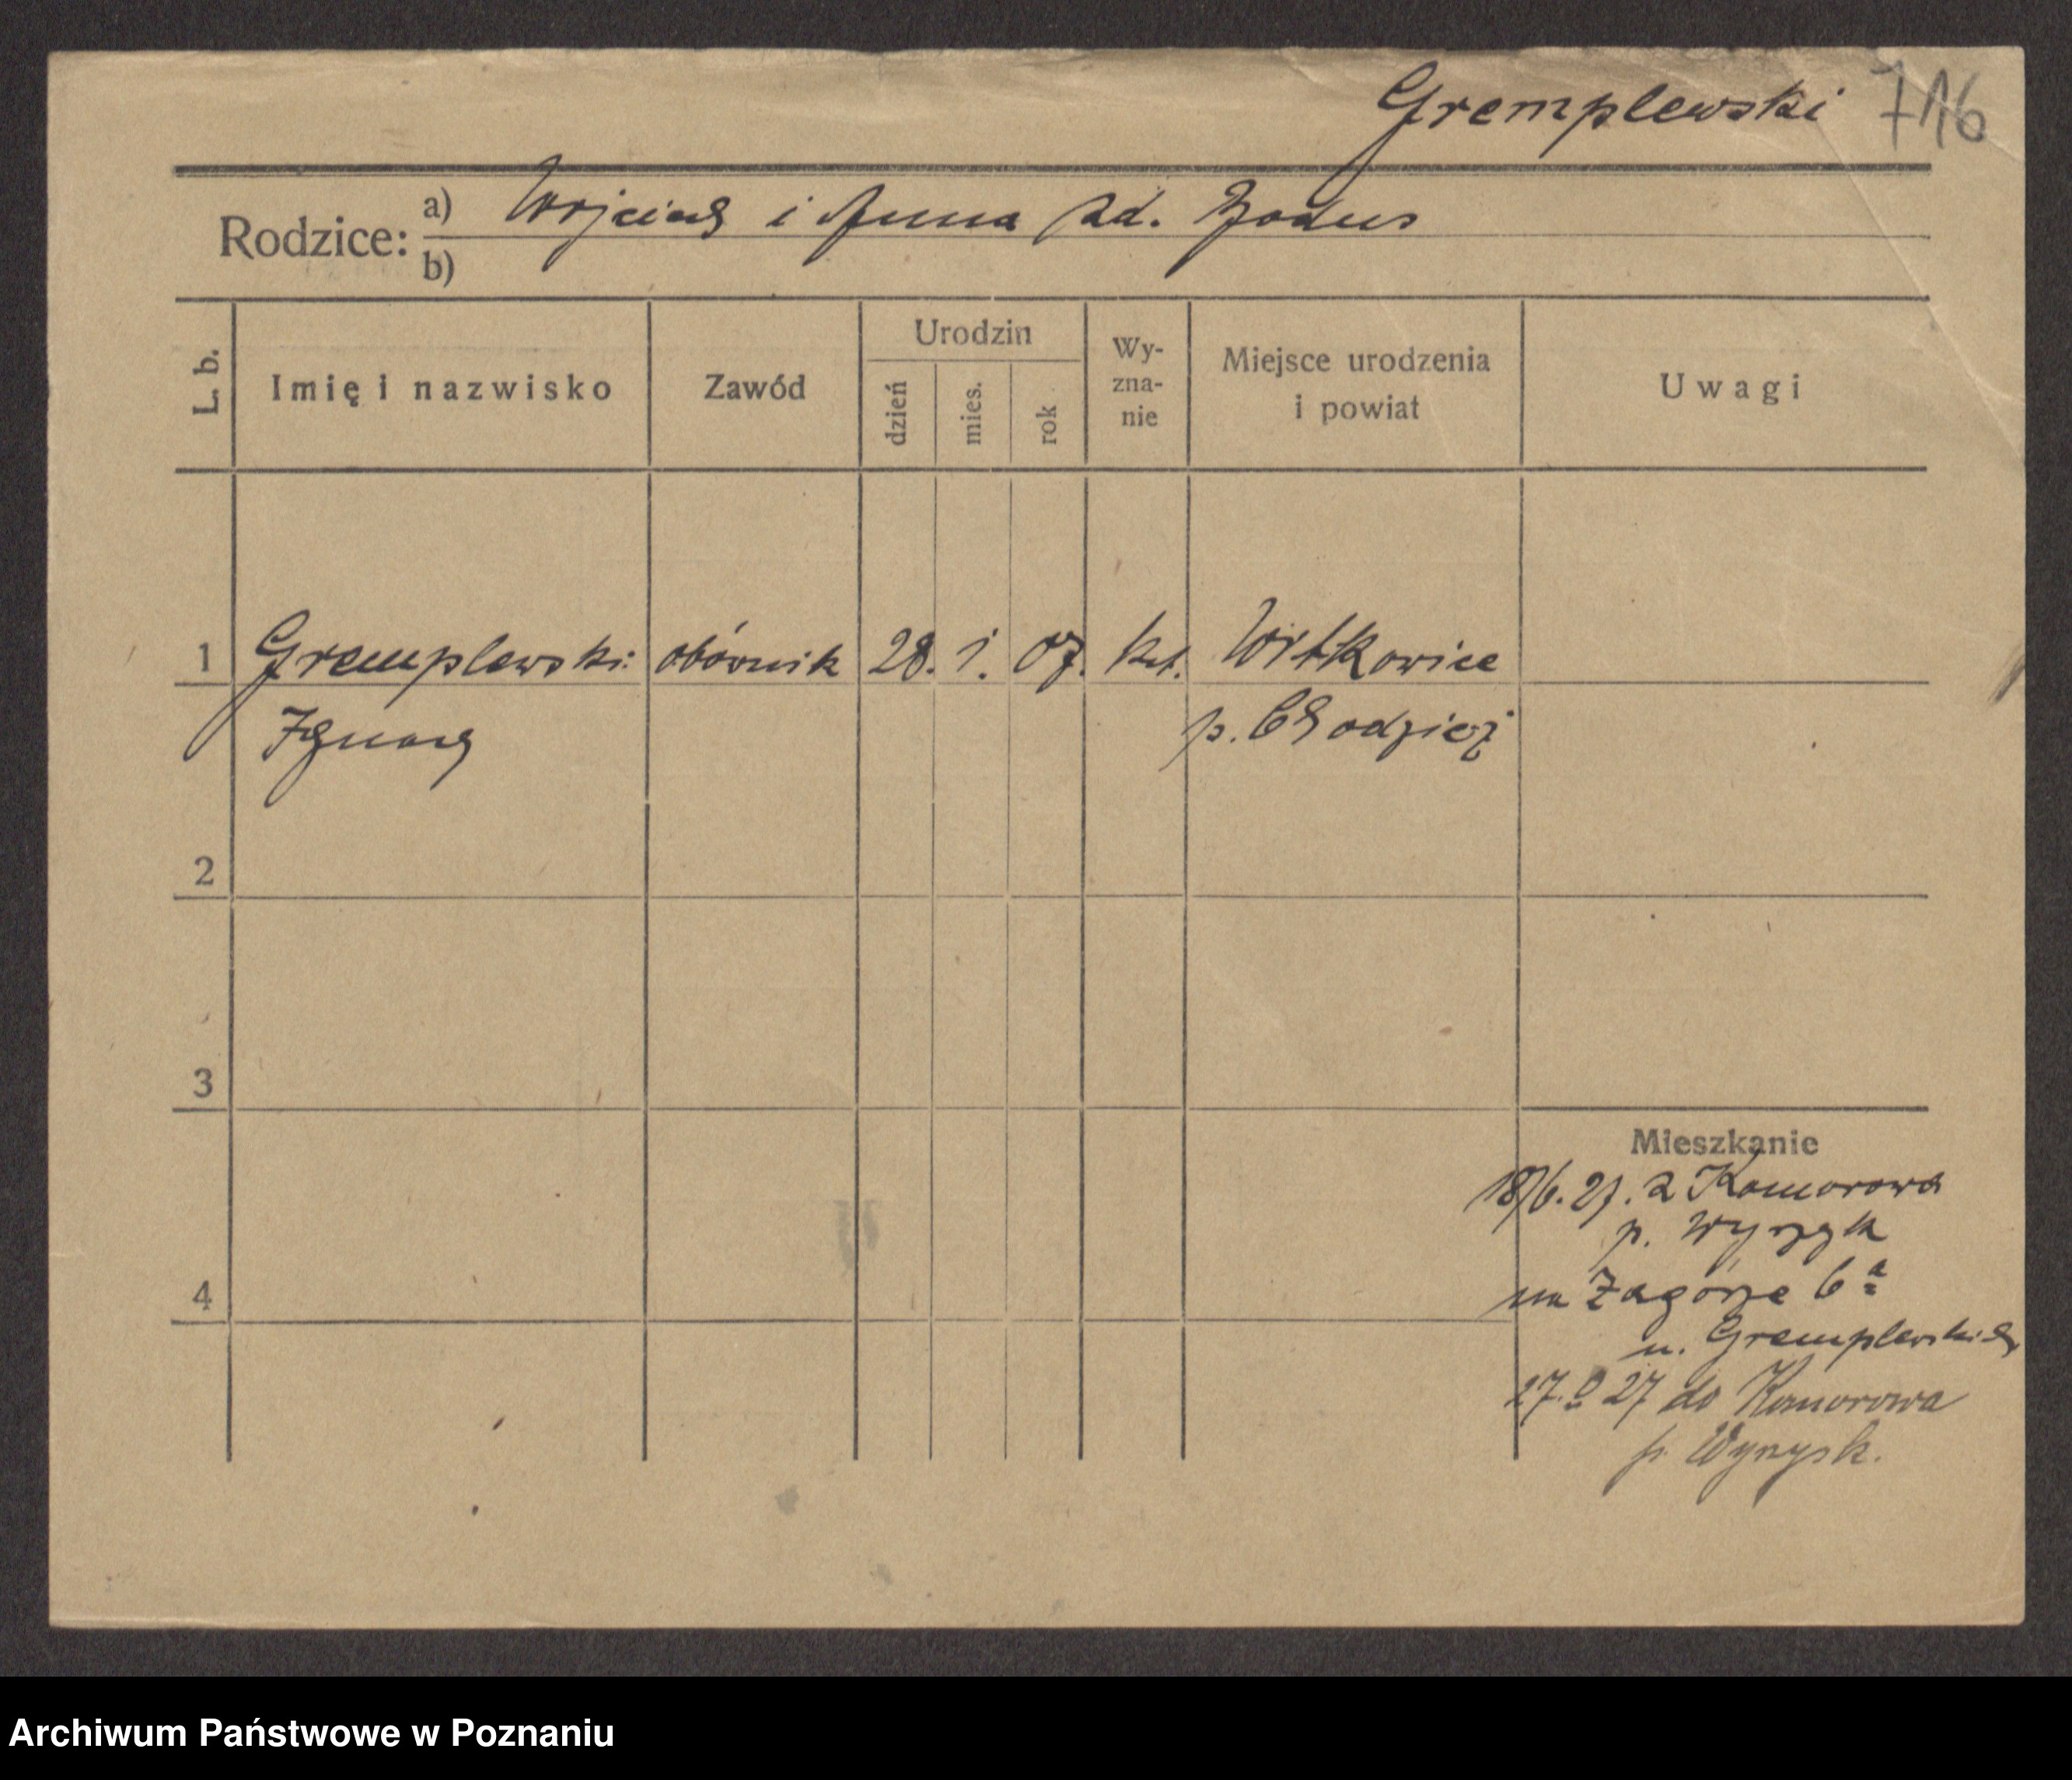 Gremplewski 716
Rodzice: a) Wojciech i Anna zd. Bodus
b)
L. b. Imię i nazwisko Zawód Urodzin dzień mies. rok Wyznanie Miejsce urodzenia i powiat Uwagi
1 Gremplewski obórnik 28. 1. 07. kat. Witkowice
Ignacy p. Chodzież
2
3
Mieszkanie
18/6. 27. z Komorowa
p. Wyrzysk
4 na Zagórze 6a
u. Gremplewskich
27. 27 do Komorowa
p. Wyrzysk.
Archiwum Państwowe w Poznaniu